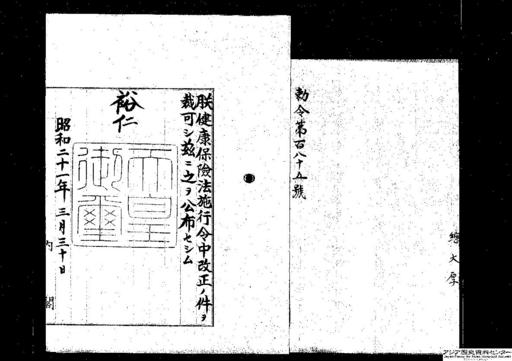 勅令第百八十五號
總大厚
朕健康保險法施行令中改正ノ件ヲ
裁可シ茲ニ之ヲ公布セシム
裕仁
天皇
御璽
昭和二十一年三月三十日
内閣
アジア歴史資料センター